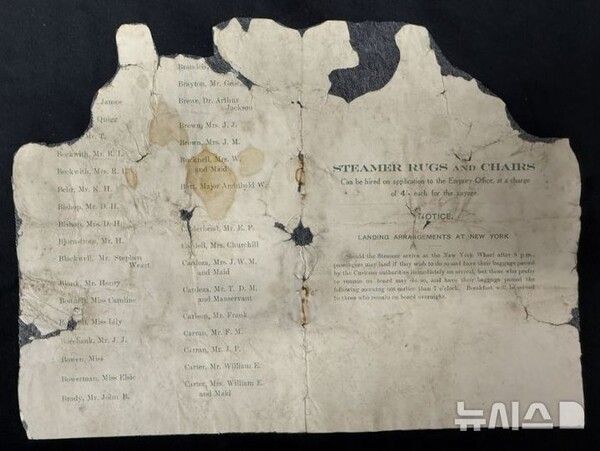 James
Quigg
T.
Beckwith, Mr. R. L.
Beckwith, Mrs. R. L.
Behr, Mr. K. H.
Bishop, Mr. D. H.
Bishop, Mrs. D. H.
Bjornstrom, Mr. H.
Blackwell, Mr. Stephen
Weart
Blank, Mr. Henry
Miss Caroline
Miss Lily
Mr. J. J.
Bowen, Miss
Bowerman, Miss Elsie
Brady, Mr. John B.
Brayton, Mr. Geo.
Brewe, Dr. Arthur
Jackson
Brown, Mrs. J. J.
Brown, Mrs. J. M.
Bucknell, Mrs. W.
and Maid
Butt, Major Archibald W.
Mr. E. P.
Mrs. Churchill
Cardeza, Mrs. J. W. M.
and Maid
Cardeza, Mr. T. D. M.
and Manservant
Carlson, Mr. Frank
Carran, Mr. F. M.
Carran, Mr. J. P.
Carter, Mr. William E.
Carter, Mrs. William E.
and Maid
STEAMER RUGS AND CHAIRS
Can be hired on application to the Enquiry Office, at a charge
of 4/- each for the voyage.
NOTICE.
LANDING ARRANGEMENTS AT NEW YORK
Should the Steamer arrive at the New York Wharf after 8 p.m.,
passengers may land if they wish to do so and have their baggage passed
by the Customs authorities immediately on arrival, but those who prefer
to remain on board may do so, and have their baggage passed the
following morning not earlier than 7 o'clock. Breakfast will be served
to those who remain on board overnight.
뉴시스